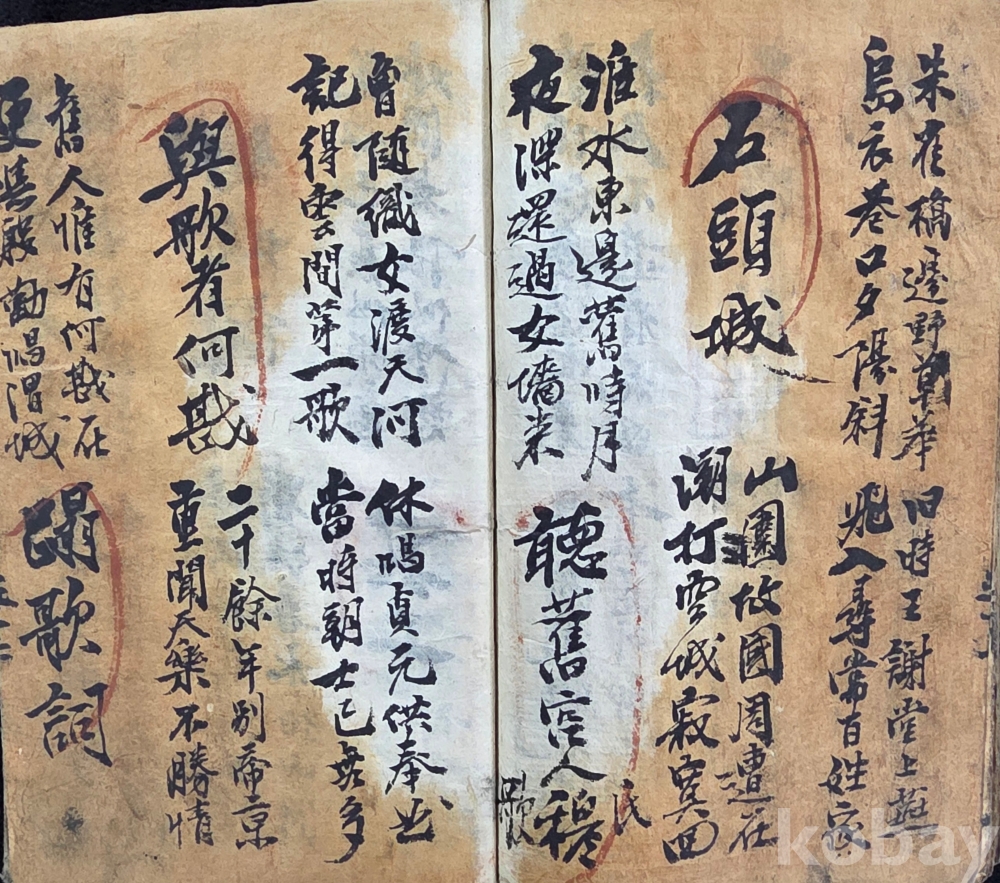 朱雀橋邊野草華
烏衣巷口夕陽斜
旧時王謝堂上燕
飛入尋常百姓家
石頭城
山圍故國周遭在
潮打空城寂寞回
淮水東邊舊時月
夜深還過女墻來
聽舊宮人穆氏歌
曾隨織女渡天河
記得雲間第一歌
休唱貞元供奉曲
當時朝士已無多
與歌者何戡
二十餘年別帝京
重聞天樂不勝情
舊人惟有何戡在
更與殷勤唱渭城
蹋歌詞
kobay